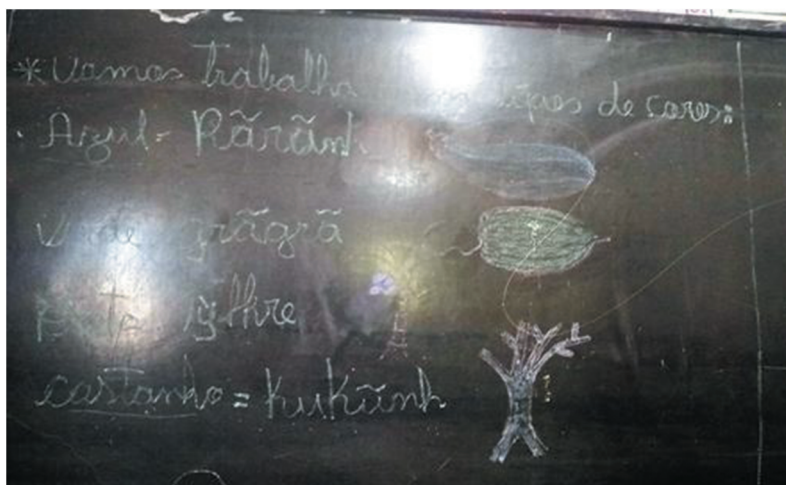 *Vamos trabalha tipos de cores:
Azul = Rãrãnh
Verde grãgrã
Preto ỹthre
castanho = KuKãnh